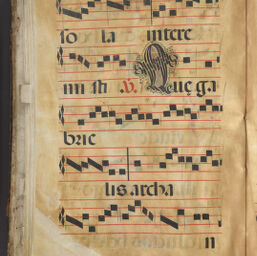 so la intere
mi sti .V. Aueq ga
brie
lis archa
n